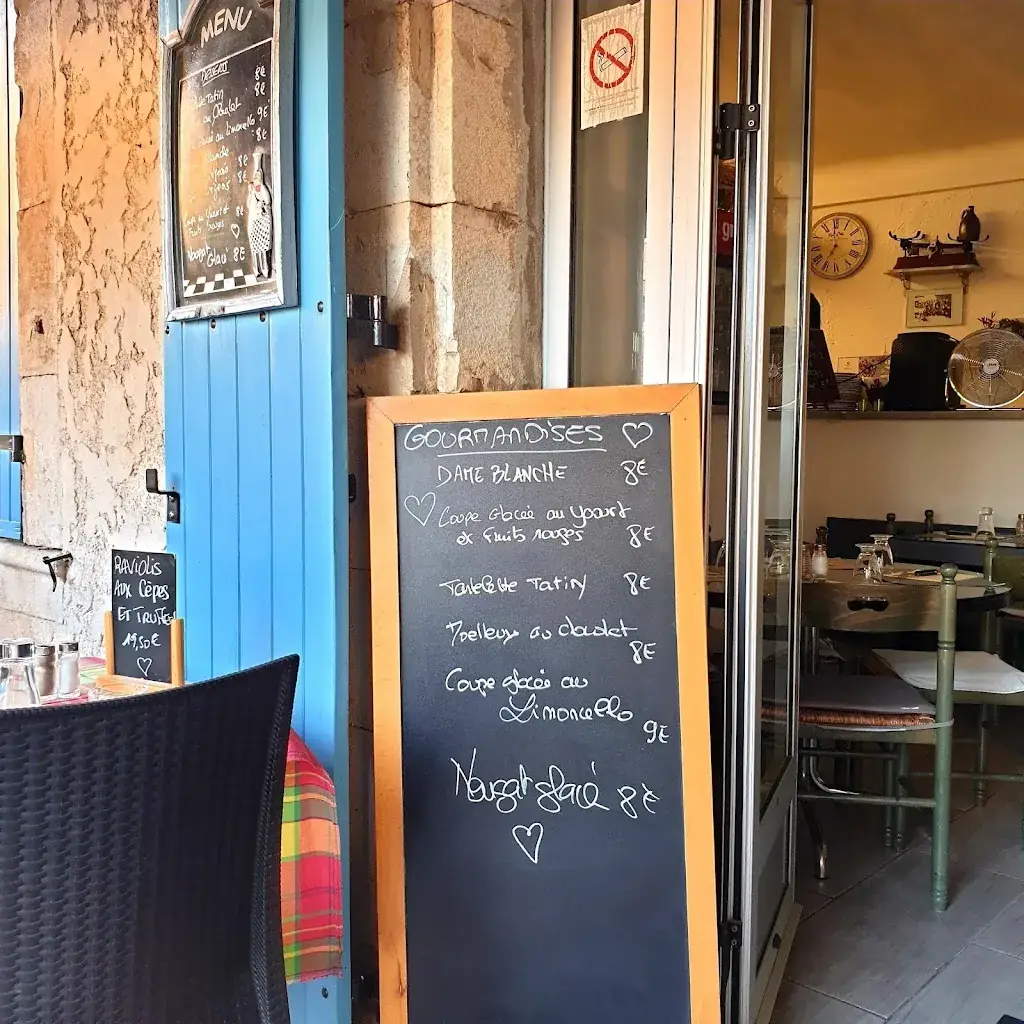 MENU
DESSERTS 8€
Tatin 8€
au chocolat 9€
au limoncello 8€
Blanche
8€
8€
Coupe au Yaourt et 8€
Fruits Rouges
Nougat Glacé 8€
GOURMANDISES
DAME BLANCHE 8€
Coupe Glacée au Yaourt
et Fruits rouges 8€
Tartelette Tatin 8€
Moelleux au chocolat
8€
Coupe glacée au
Limoncello
9€
Nougat glacé 8€
RAVIOLIS
AUX CÈPES
ET TRUFFES
19,50€